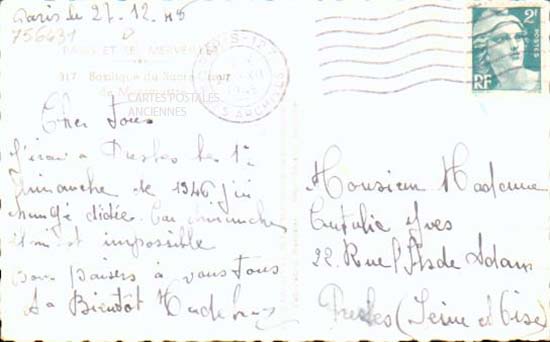 Paris le 27.12.45
756431
PARIS ET SES MERVEILLES
317 Basilique du Sacré-Cœur
de Montmartre
CARTES POSTALES
ANCIENNES
2F
POSTES
RF
Cher Tous
J'irai à Presles le 1er
Dimanche de 1946 j'ai
changé d'idée. Car dimanche
il m'est impossible
Bons baisers à vous Tous
A Bientôt
Monsieur Madame
Yves
22 Rue l'Isle Adam
Presles (Seine et Oise)